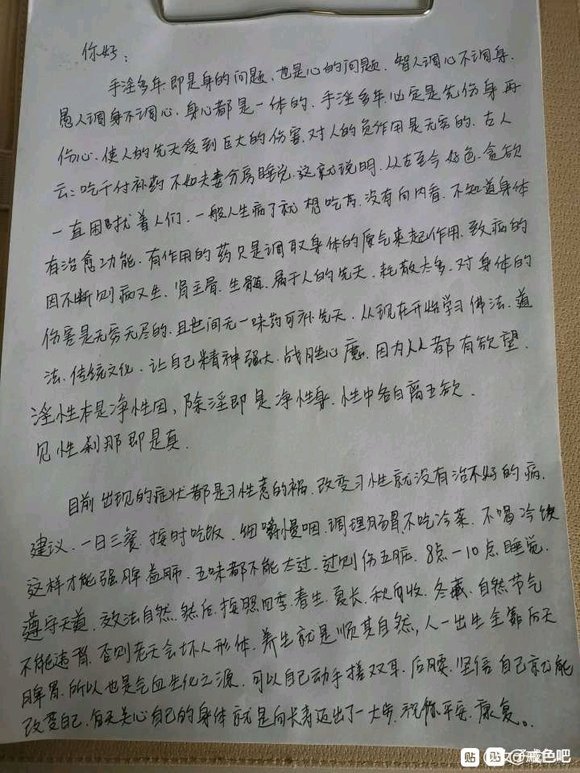 你好：
手淫多年.即是身的问题，也是心的问题，智人调心不调身，
愚人调身不调心，身心都是一体的，手淫多年必定是先伤身再
伤心，使人的先天受到巨大的伤害，对人的负作用是无穷的，古人
云：吃千付补药不如夫妻分房睡说，这就说明，从古至今好色，贪欲
一直困扰着人们，一般人生病了就想吃药，没有向内看，不知道身体
有治愈功能，有作用的药只是调取身体的原气来起作用，致病的
因不断则病又生，肾主骨，生髓，属于人的先天，耗散太多，对身体的
伤害是无穷无尽的，且世间无一味药可补先天，从现在开始学习佛法、道
法、传统文化，让自己精神强大，战胜心魔，因为人人都有欲望，
淫性本是净性因，除淫即是净性身，性中各自离五欲，
见性刹那即是真.
目前出现的症状都是习性惹的祸，改变习性就没有治不好的病，
建议，一日三餐，按时吃饭，细嚼慢咽，调理肠胃，不吃冷菜，不喝冷饮
这样才能强脾益肺，五味都不能太过，过则伤五脏，8点—10点睡觉，
遵守天道，效法自然，然后，按照四季春生，夏长，秋收，冬藏，自然节气
不能违背，否则老天会坏人形体，养生就是顺其自然，人一出生全靠后天
脾胃，所以也是气血生化之源，可以自己动手搓双耳，后腰，坚信自己就能
改变自己，每天关心自己的身体就是向长寿迈出了一大步，祝你平安，康复。
贴 贴 戒色吧